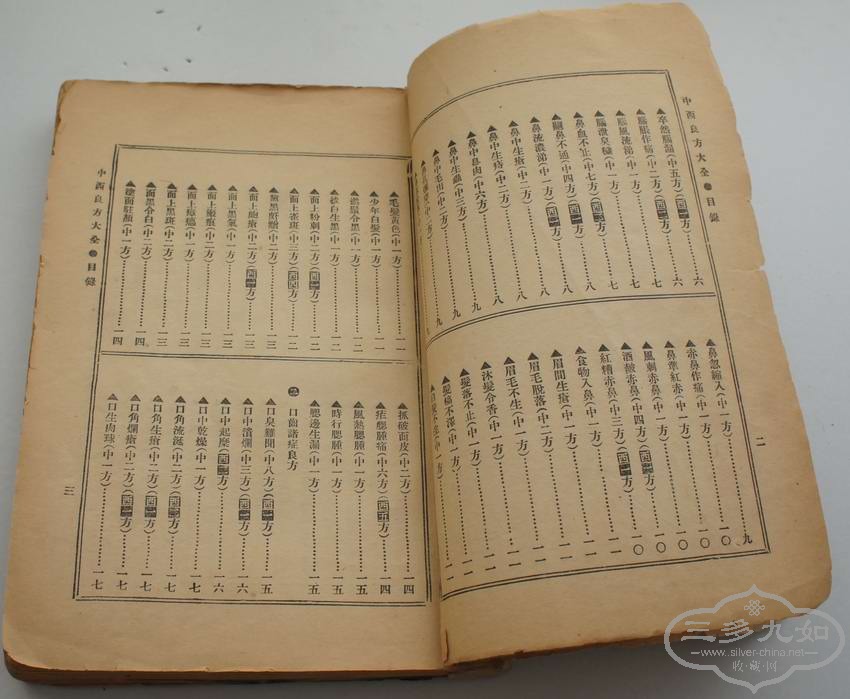 中西良方大全 目錄
卒然腦漏(中五方)(西一方)六
腦脹作痛(中二方)(西二方)六
腦風流涕(中一方)七
腦泄臭穢(中一方)七
鼻血不止(中七方)(西三方)八
鼻不通(中四方)(西一方)八
鼻流濃涕(中一方)八
鼻中生瘡(中二方)八
鼻中生痔(中二方)八
鼻中息肉(中六方)九
鼻中生蟲(中三方)九
鼻中毛出(中一方)九
鼻忽縮入(中一方)九
赤鼻作痛(中一方)一〇
鼻準紅赤(中一方)一〇
風刺赤鼻(中四方)一〇
酒皶赤鼻(中三方)一〇
紅糟赤鼻(中一方)一〇
食物入鼻(中一方)一一
眉間生瘡(中一方)一一
眉毛不生(中一方)一一
眉毛脫落(中二方)一一
沐髮令香(中一方)一一
髮落不止(中一方)一一
髮槁不澤(中一方)一一
二
毛髮黃色(中一方)一一
少年白髮(中一方)一一
令黑(中一方)一二
拔白生黑(中一方)一二
面上粉刺(中二方)一二
面上雀斑(中三方)(西四方)一二
黧黑皯䵳(中二方)一二
面上皰瘡(中二方)一三
面上黑氣(中一方)一三
面上瘢痕(中二方)一三
面上癍痣(中一方)一三
面上黑斑(中二方)一三
面黑令白(中二方)一四
塗面駐顏(中一方)一四
抓破面皮(中二方)一四
痄腮腫痛(中六方)(西五方)一四
風熱腮腫(中一方)一五
時行腮腫(中一方)一五
腮邊生漏(中一方)一五
口齒諸症良方
口臭難聞(中八方)一五
口中潰爛(中三方)一六
口中起瘰一六
口中乾燥(中一方)一七
口角流涎(中二方)一七
口角生瘡(中二方)一七
口角爛瘡(中二方)一七
口生肉球(中一方)一七
中西良方大全 目錄
三
三多九如
www.silver-china.net
收·藏·网